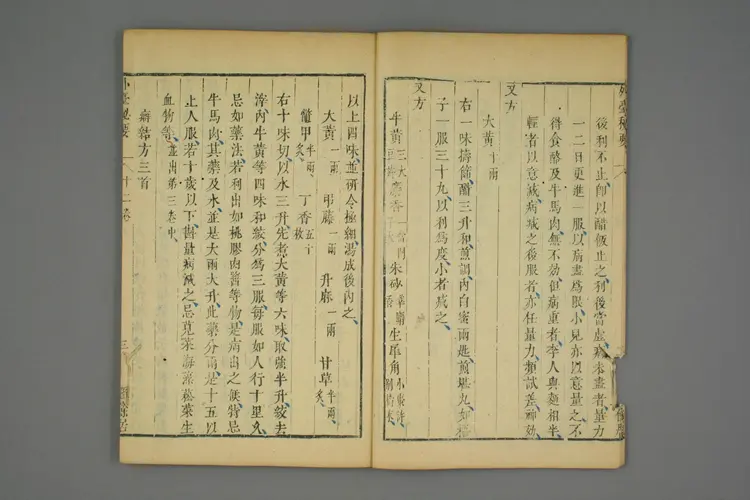 後利不止即以醋飯止之利後當虛病未盡者量力
一二日更進一服以病盡為限小兒亦以意量之不
得食酪及牛馬肉無不効但病重者李人與麵相半
輕者以意減病減之後服者亦任量力頻試差神効
又方
大黃十兩
右一味擣篩醋三升和煎調內白蜜兩匙煎堪丸如梧
子一服三十丸以利為度小者減之
又方
牛黃三大 麝香一 朱砂 生犀角
以上四味並研令極細湯成後內之
大黃一兩 弔藤一兩 升麻一兩 甘草半兩炙
鱉甲半兩炙 丁香五十枚
右十味切以水三升先煮大黃等六味取強半升絞去
滓內牛黃等四味和絞分為三服每服如人行十里久
忌如藥法若利出如桃膠肉醬等物是病出之候特忌
牛馬肉其藥及水並是大兩大升此藥分兩是十五以
上人服若十歲以下斟量病減之忌莧菜海藻菘菜生
血物等並出第三卷中
癖結方三首
外臺秘要 十二卷 三